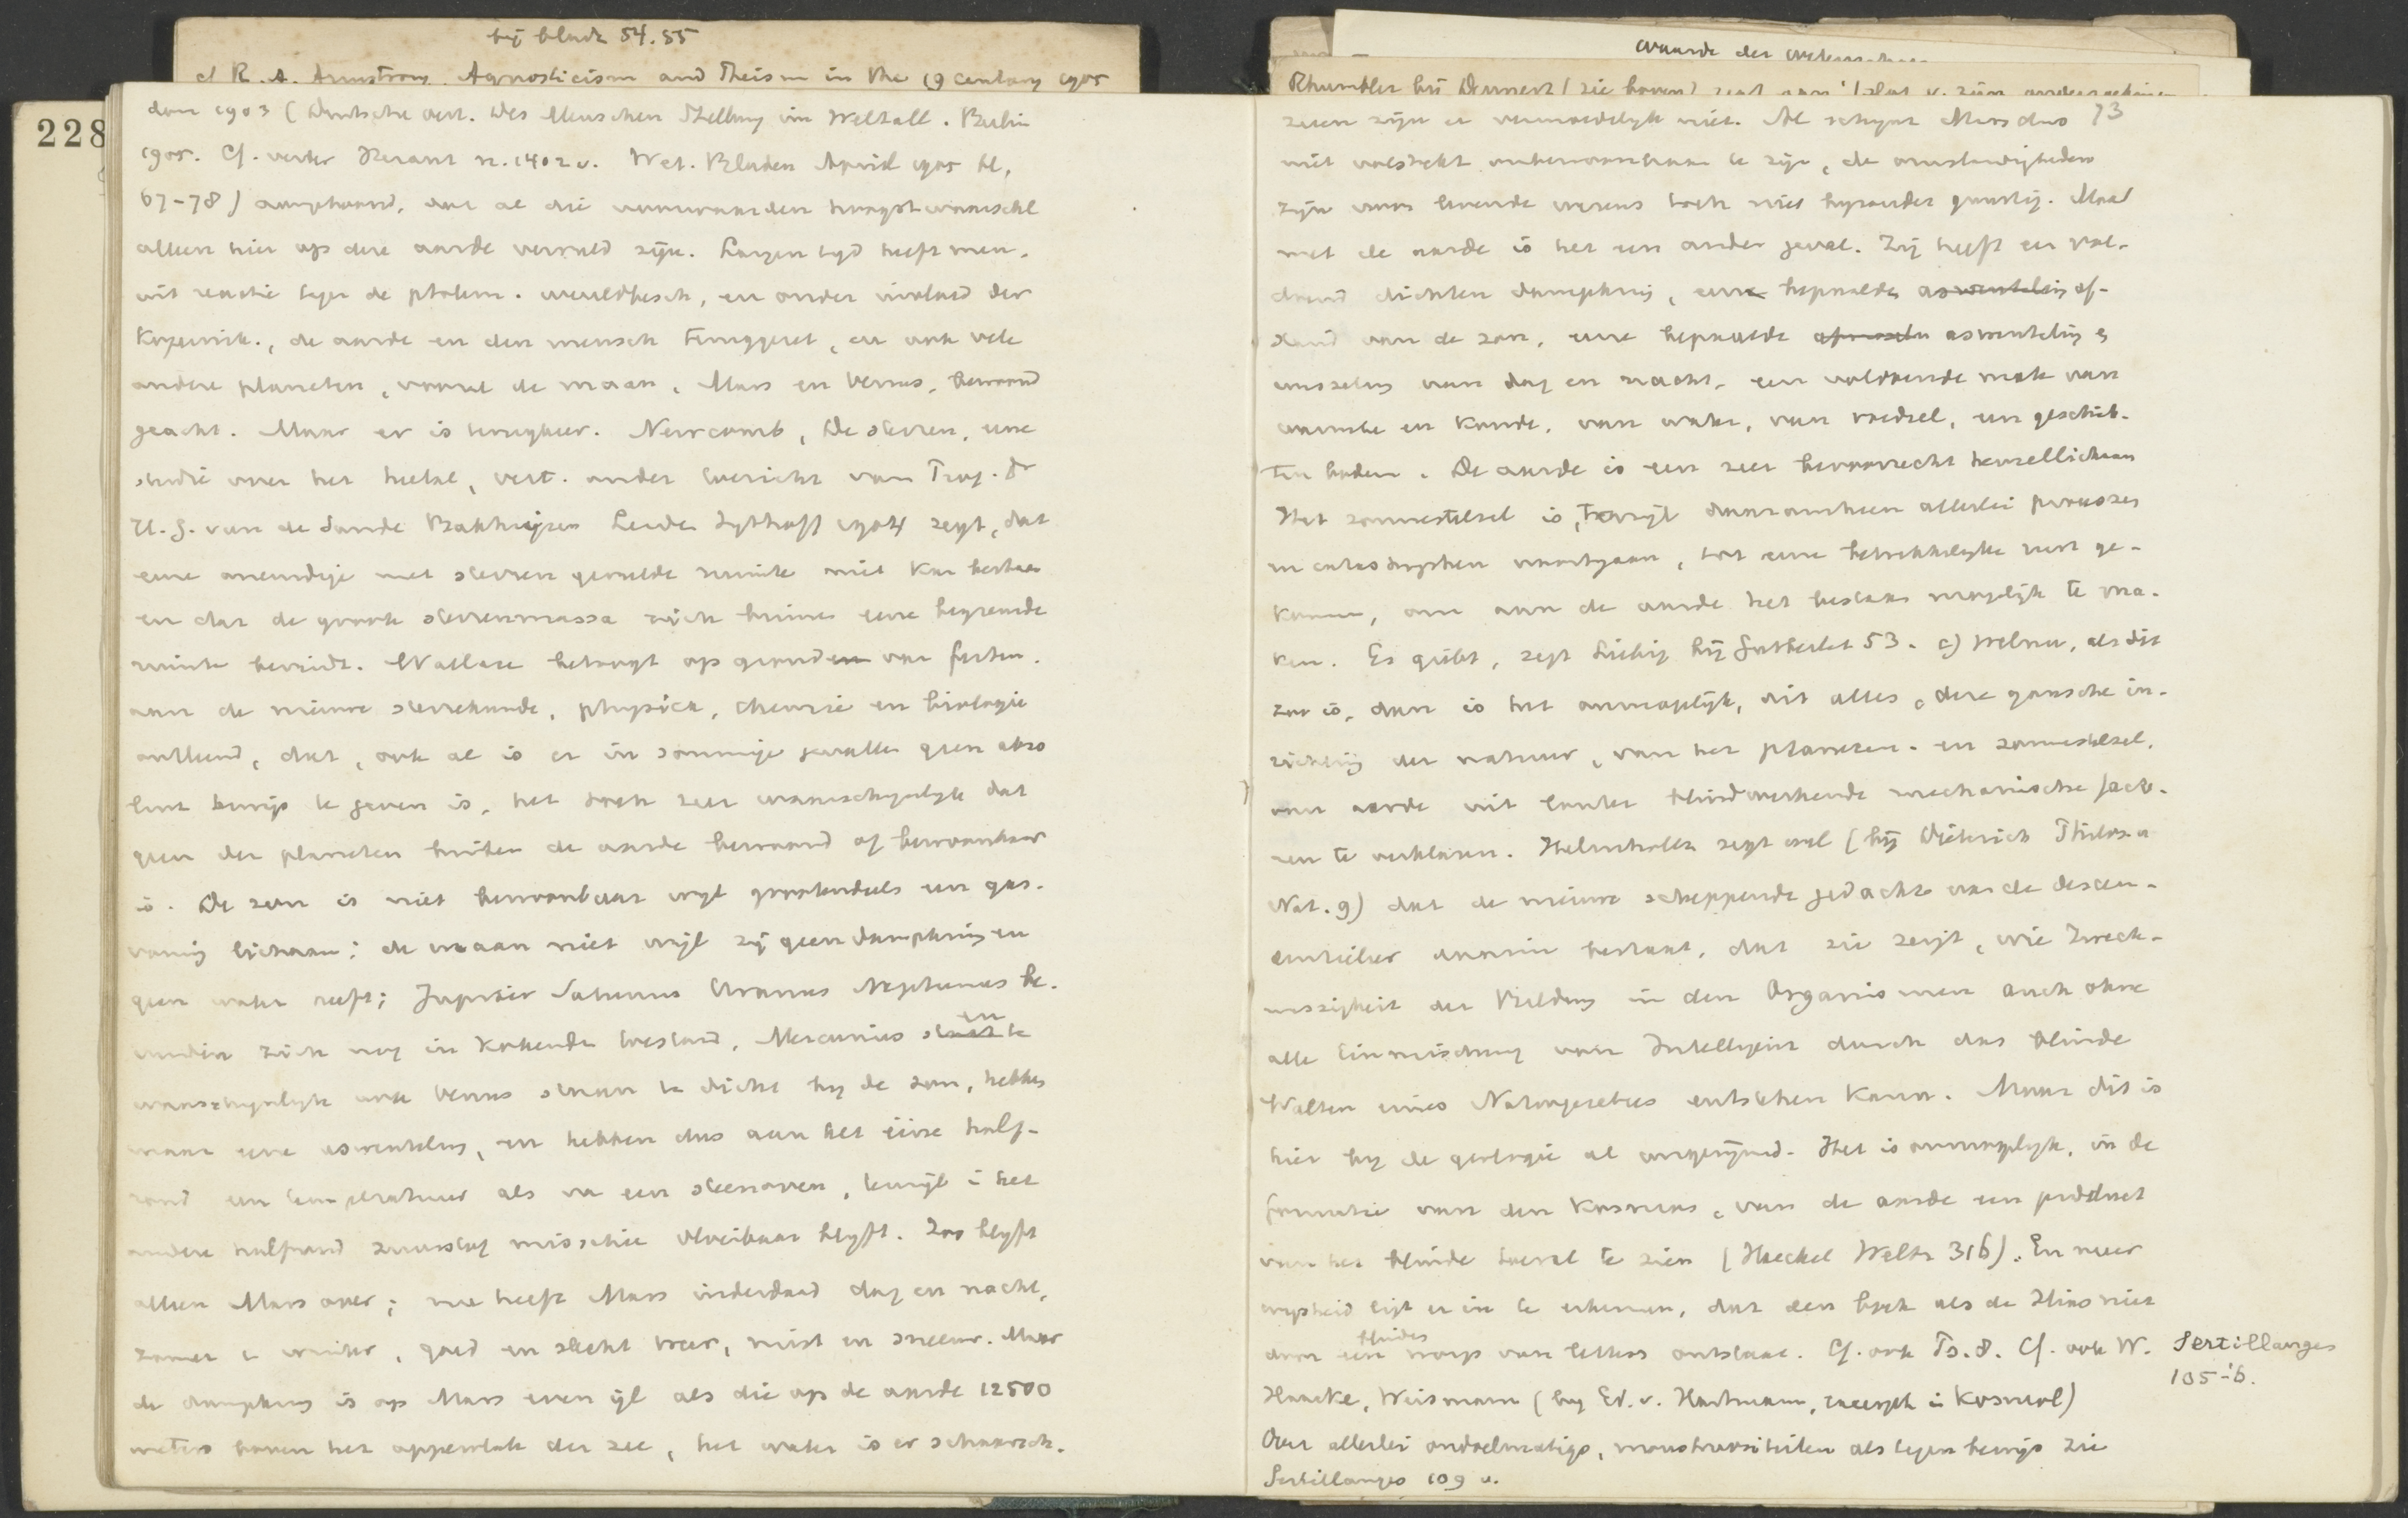 bij bladz 54.55
cf R. A. Armstrong, Agnosticism and Theism in the 19 century 1905
228
don 1903 (Deutsche vert. Des Menschen Stellung im Weltall. Berlin
1905. Cf. verder n. 1402 v. Wet. Bladen April 1905 bl.
67-78) dat al die voorwaarden hoogstwaarschl
alleen hier op deze aarde vervuld zijn. Langen tijd heeft men,
uit reactie tegen de ptolem. wereldbesch, en onder invloed der
Kopernik., de aarde en den mensch teruggezet, en ook vele
andere planeten, vooral de maan, Mars en Venus, bewoond
geacht. Maar er is terugkeer. Newcomb, De sterren, eene
studie over het heelal, vert. onder toezicht van Prof. Dr
H. G. van de Sande Bakhuijzen Leiden Sijthoff 1904 zegt, dat
eene oneindige met sterren gevulde ruimte niet kan bestaan
en dat de groote sterrenmassa zich binnen eene begrensde
ruimte bevindt. Wallace betoogt op gronden van feiten.
aan de nieuwe sterrekunde, physica, chemie en biologie
ontleend, dat, ook al is er in sommige gevallen geen abso
luut bewijs te geven is, het toch zeer waarschijnlijk dat
geen der planeten buiten de aarde bewoond of bewoonbaar
is. De zon is niet bewoonbaar wijl grootendeels een gas-
vormig lichaam; de maan niet wijl zij geen dampkring en
geen water heeft; Jupiter Saturnus Uranus Neptunus be-
vinden zich nog in kokenden toestand, Mercurius en
waarschijnlijk ook Venus staan te dicht bij de zon, hebben
maar eene aswenteling, en hebben dus aan het eene half-
rond een temperatuur als van een steenoven, terwijl i het
andere halfrond zuurstof misschien vloeibaar blijft. Zoo blijft
alleen Mars over; nu heeft Mars inderdaad dag en nacht,
zomer en winter, goed en slecht weer, mist en sneeuw. Maar
de dampkring is op Mars even ijl als die op de aarde 12500
meters boven het oppervlak der zee, het water is er schaarsch.
waarde der
Rhumbler bij Dennert (zie boven)
73
zeeen zijn er vermoedelijk niet. Al schijnt Mars dus
niet volstrekt onbewoonbaar te zijn, de omstandigheden
zijn voor levende wezens toch niet bijzonder gunstig. Maar
met de aarde is het een ander geval. Zij heeft een vol-
doend dichten dampkring, eene bepaalde aswenteling af-
stand van de zon, eene bepaalde aswenteling en
wisseling van dag en nacht, een voldoende mate van
warmte en koude, van water, van voedsel, een geschik-
ten bodem. De aarde is een zeer bevoorrecht hemellichaam
Het zonnestelsel is, terwijl daaromheen allerlei processen
en catastrophen voortgaan, tot eene betrekkelijke rust ge-
komen, om aan de aarde het bestaan mogelijk te ma-
ken. Es gibt, zegt Liebig bij Gutberlet 53. c) Welnu, als dit
zoo is, dan is het onmogelijk, dit alles, deze gansche in-
richting der natuur, van het planeten- en zonnestelsel,
van aarde uit louter blindwerkende mechanische facto-
ren te verklaren. Helmholtz zegt wel (bij Dieterich Philos. u
Nat. 9) dat de nieuwe scheppende gedachte van de descen-
dentieleer daarin bestaat, dat zie zeigt, wie Zweck-
mässigkeit der Bildung in den Organismen auch ohne
alle Einmischung von Intelligenz durch das blinde
Walten eines Naturgesetzes entstehen kann. Maar dit is
hier bij de geologie al ongerijmd. Het is onmogelijk, in de
formatie van den kosmos, van de aarde een product
van het blinde toeval te zien (Haeckel Weltr 316). En meer
wijsheid ligt er in te erkennen, dat den bijbel als de Ilias niet
door een blindes worp van letters ontstaan. Cf. ook Ps. 8. Cf. ook W.
Haacke, Weismann (bij Ed. v. Hartmann, excerpt in Kosmol)
Over allerlei ondoelmatigs, monstruositeiten als tegen bewijs zie
Sertillanges 109 v.
Sertillanges
105-'6.